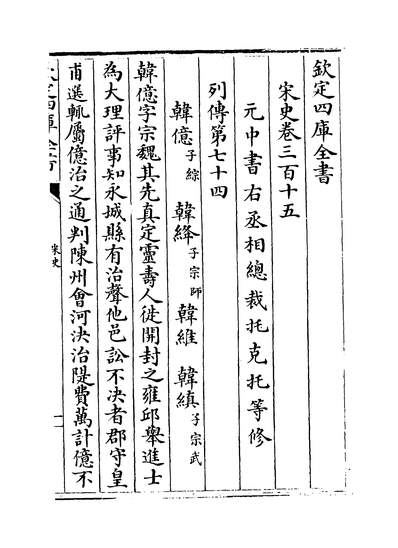 欽定四庫全書
宋史卷三百十五
元中書右丞相總裁托克托等修
列傳第七十四
韓億子綜 韓絳子宗師 韓維 韓縝子宗武
韓億字宗魏其先真定靈壽人徙開封之雍邱舉進士
為大理評事知永城縣有治聲他邑訟不決者郡守皇
甫選輒屬億治之通判陳州會河決治隄費萬計億不
宋史